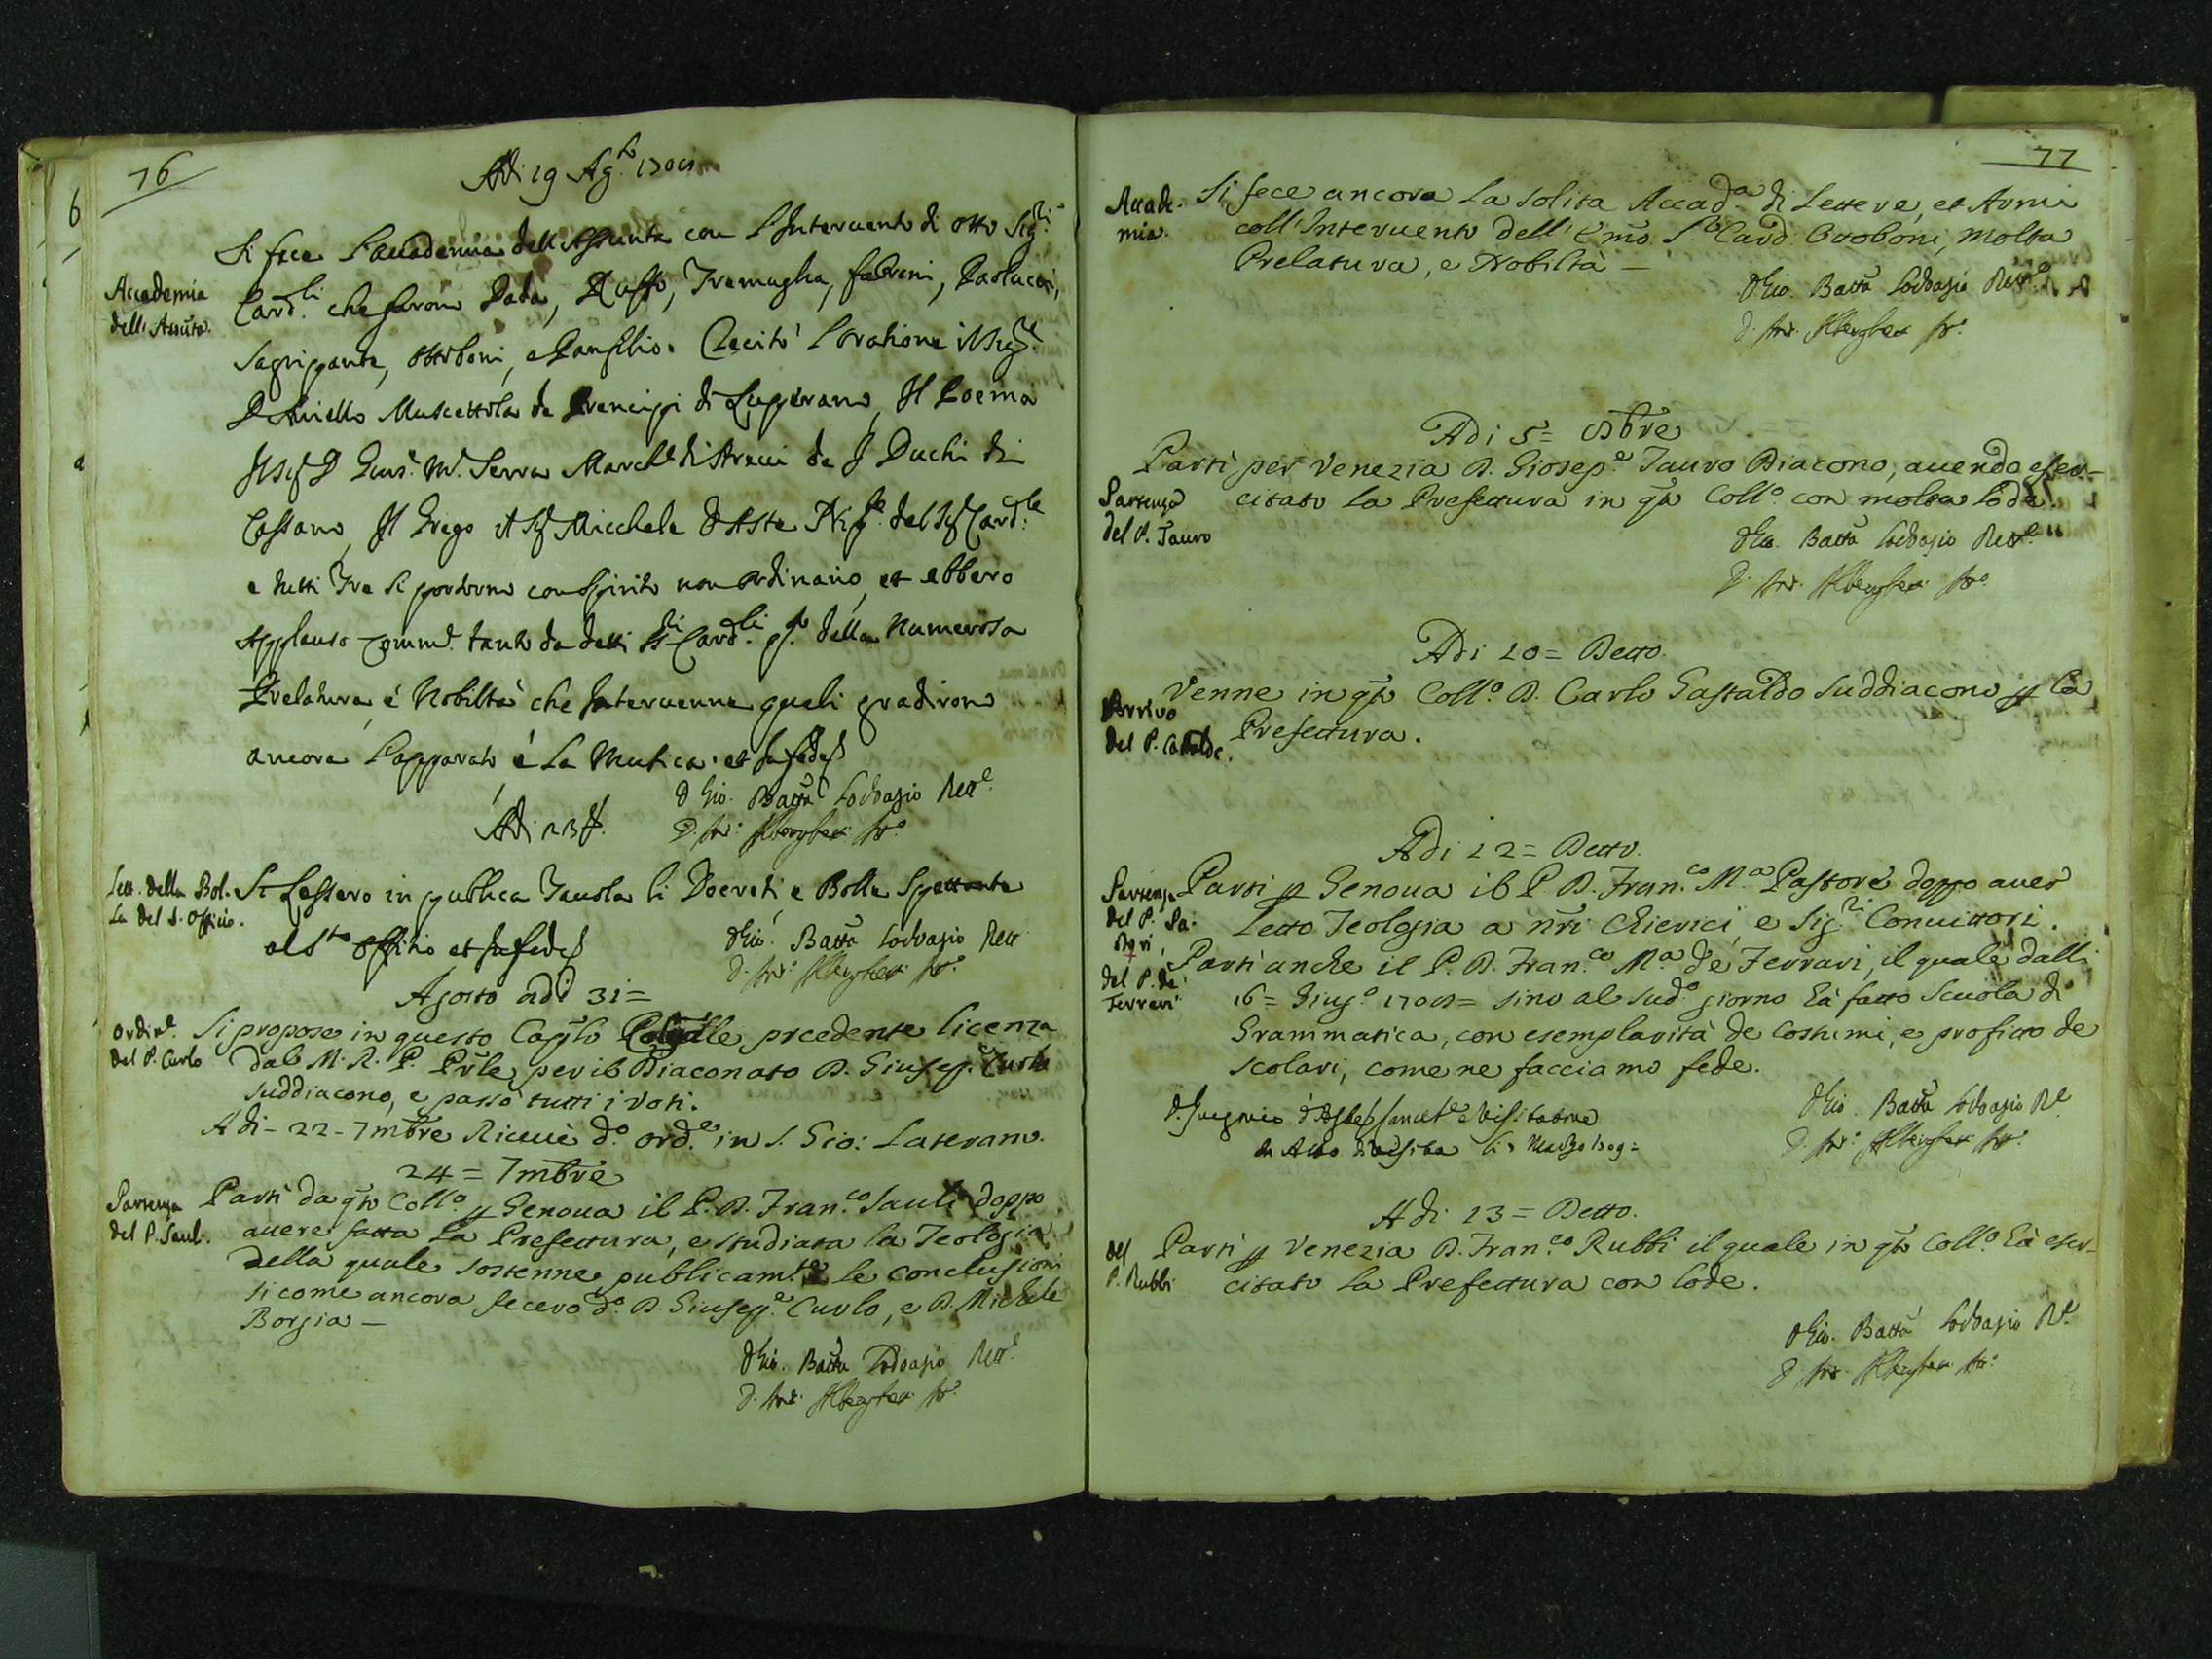 76
Adi 19 Ag.to 1708
Accademia
dell'Assũta.
Si fece l'accademia dell'Assunta con l'Interuento di otto Sig.ri
Card.li che furono Dada, Ruffo, Tremoglia, fabroni, Paolucci,
Sagripante, Ottoboni, e Panfilio. Recitò l'oratione il Sig.r
D Aniello Muscettola de Prencipi di Luperano, Il Poema
Il Sig D M.a Serra March.e di Strevi de Duchi di
Cassano, Il Grego il Sig Micchele d'Aste del Sig Card.le
e tutti tre si portorno con spirito non ordinario, et ebbero
Applauso tanto da detti Card.li della Numerosa
Prelatura, é Nobiltà che Interuenne quali gradirono
ancora l'apparato é la Musica. et In fede
D Gio. Batta Lodoasio Rett.e
Adi 23
Lett. della Bol-
la del S. Officio.
Si lessero in publica Tauola li Decreti e Bolle Spettante
al S.to Offitio et In fede
D Gio. Batta Lodoasio Rett
Agosto adi 31=
Ordin.e
del P. Curlo
Si propose in questo Cap.lo precedente licenza
dal M. R. P. Pr̃le, per il Diaconato D. Giusep.e Curlo
suddiacono, e passò tutti i voti.
Adi - 22 - 7mbre Riceuè d.o ord.e in S. Gio: Laterano.
24 = 7mbre
Partenza
del P. Sauli.
Partì da q̃to Coll.o p Genoua il P. D. Fran.co Sauli doppo
auere fatta la Prefettura, e studiata la Teologia
della quale sostenne publicam.te le conclusioni
si come ancora fecero d.o D. Giusep.e Curlo, e D. Michele
Borgia —
D Gio. Batta Lodoasio Rett.e
77
Accade-
mia.
Si fece ancora la solita Accad.a di Lettere, et Armi
coll'Interuento dell'Em̃o S.r Card. Ottoboni, molta
Prelatura, e Nobiltà —
D Gio. Batta Lodoasio Rett.e
Adi 5 = 8bre
Partenza
del P. Tauro
Partì per Venezia D. Giosep.e Tauro Diacono, auendo eser-
citato la Prefettura in q̃to Coll.o con molta lode.
D Gio. Batta Lodoasio Rett.e
Adi 20 = Detto.
Arrivo
del P. Castaldo.
Venne in q̃to Coll.o D. Carlo Gastaldo Suddiacono p la
Prefettura.
Adi 22 = Detto.
Partenza
del P. Pa-
stori,
del P. de
Ferrari
Partì p Genoua il P. D. Fran.co M.a Pastore doppo auer
letto Teologia a nr̃i Chierici, e Sig.ri Conuittori.
Partì anche il P. D. Fran.co M.a de Ferrari, il quale dalli
16 = Giug.o 1708 = sino al sud.o giorno hà fatto Scuola di
Grammatica, con esemplarità de costumi, e profitto de
scolari, come ne facciamo fede.
D Gio. Batta Lodoasio R.e
Visitatore
in Atto di visita li Marzo 1709=
Adi 23 = Detto.
del
P. Rubbi
Partì p Venezia D. Fran.co Rubbi il quale in q̃to Coll.o hà eser-
citato la Prefettura con lode.
D Gio. Batta Lodoasio R.e